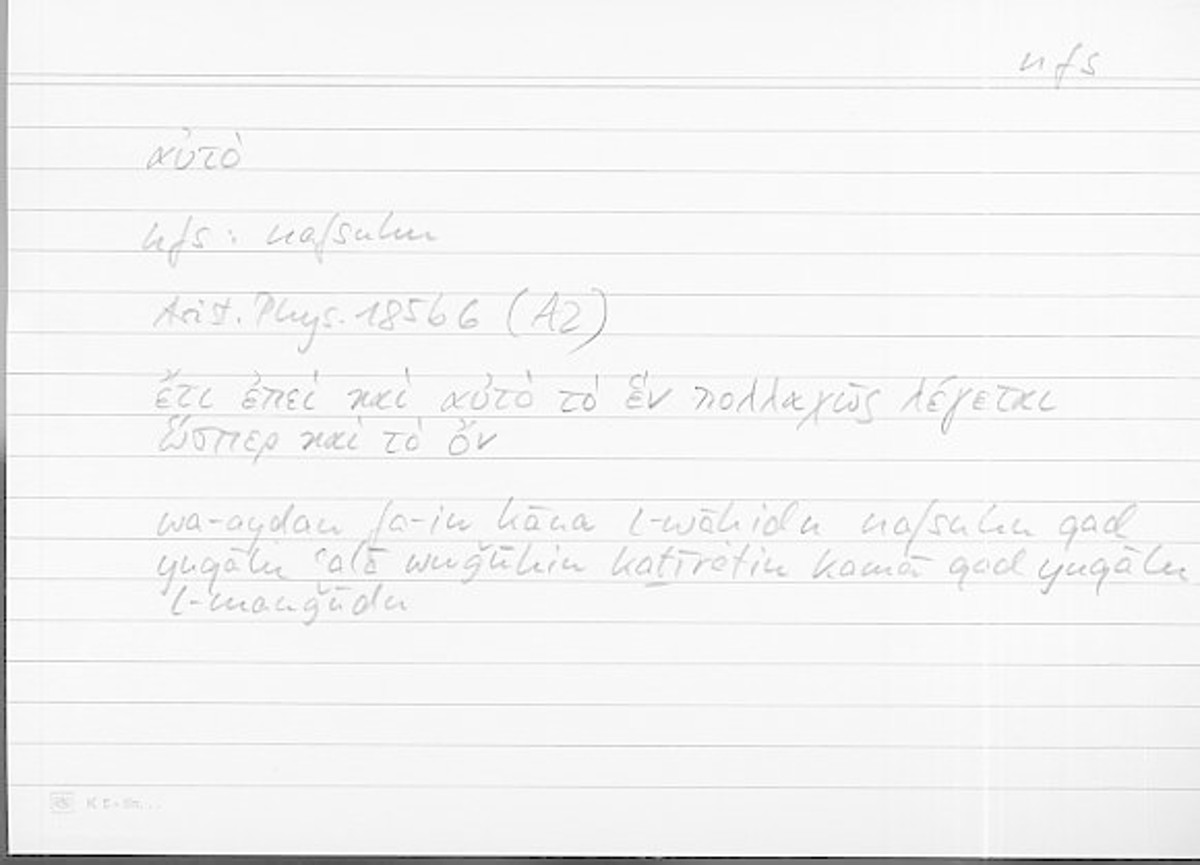 nfs
αὐτὸ
nfs : nafsuhu
Arist. Phys. 185b6 (A2)
ἔτι ἐπεὶ καὶ αὐτὸ τὸ ἓν πολλαχῶς λέγεται
ὥσπερ καὶ τὸ ὄν
wa-ayḍan fa-in kāna l-wāḥidu nafsuhu qad
yuqālu ʿalā wuǧūhin kaṯīratin kamā qad yuqālu
l-mauǧūdu